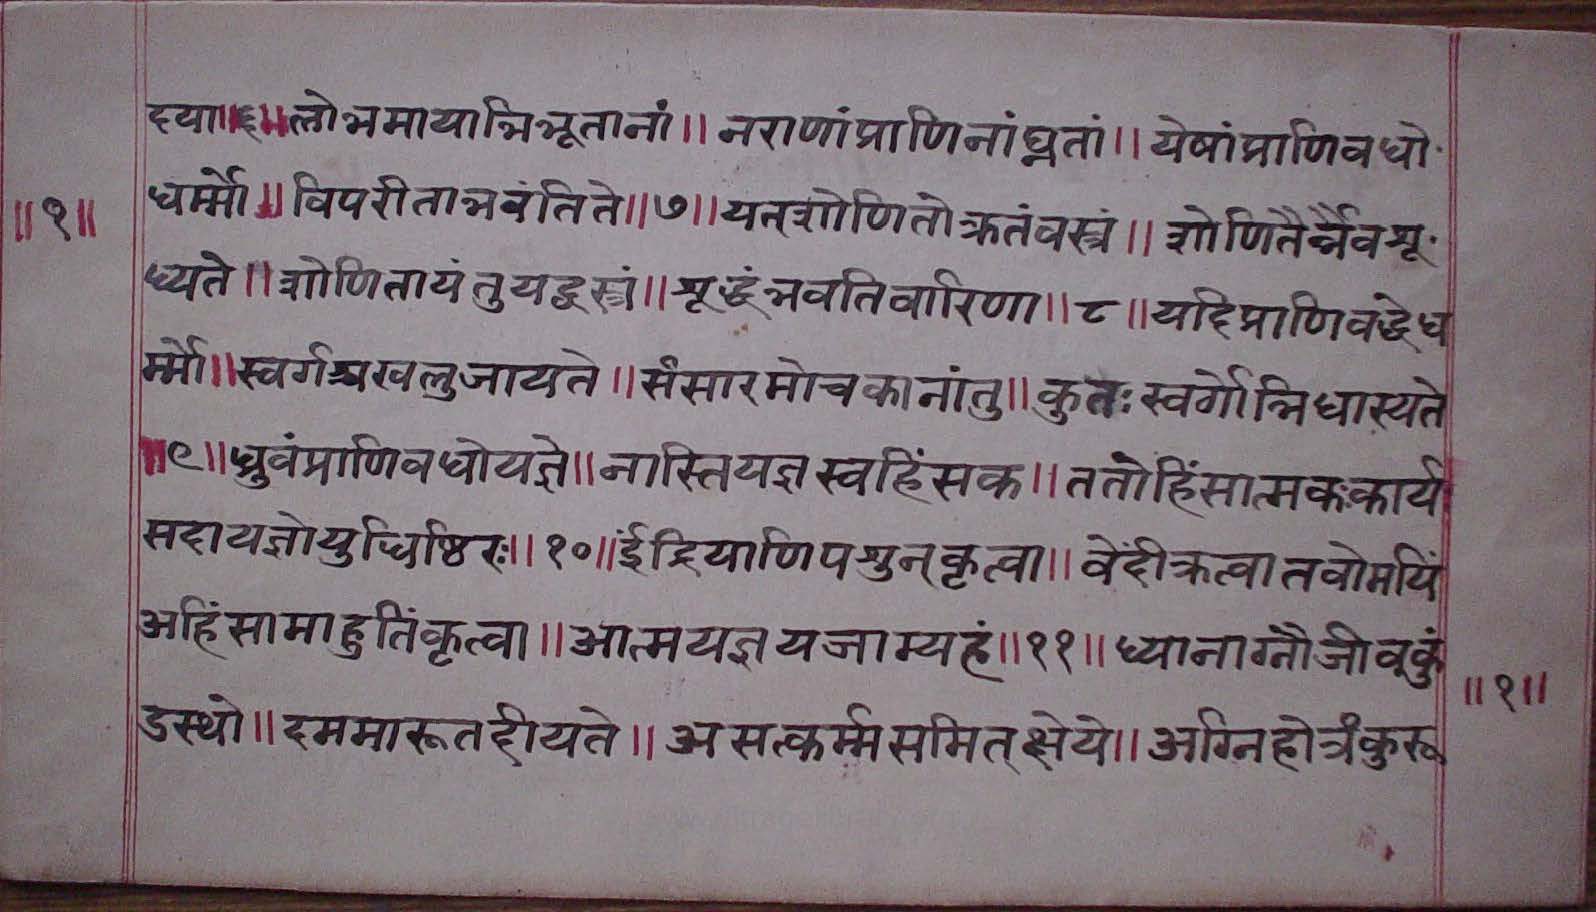 दया॥६॥लोभमायाभिभूतानां॥नराणांप्राणिनांघ्नतां॥येषांप्राणिवधो
धर्म्मो॥विपरीताभवंतिते॥७॥यत्शोणितोक्रतंवस्त्रं॥शोणितैर्न्नैवशू
॥१॥
ध्यते॥शोणितायंतुयद्वस्त्रं॥शृद्धंभवतिवारिणा॥८॥यदिप्राणिवद्धेध
र्म्मो॥स्वर्गश्चखलुजायते॥संसारमोचकानांतु॥कुतःस्वर्गोभिधास्यते
॥९॥ध्रुवंप्राणिवधोयज्ञे॥नास्तियज्ञस्वहिंसक॥ततोहिंसात्मकःकार्य
सदायज्ञोयुधिष्ठिरः॥१०॥ईंद्रियाणिपशुन्कृत्वा॥वेंदीक्रत्वातवोमयिं
अहिंसामाहुतिंकृत्वा॥आत्मयज्ञयजाम्यहं॥११॥ध्यानाग्नौजीवूकुं
॥१॥
डस्थो॥दममारूतदीयते॥असत्कर्म्मसमित्क्षेये॥अग्निहोत्रंकुरू